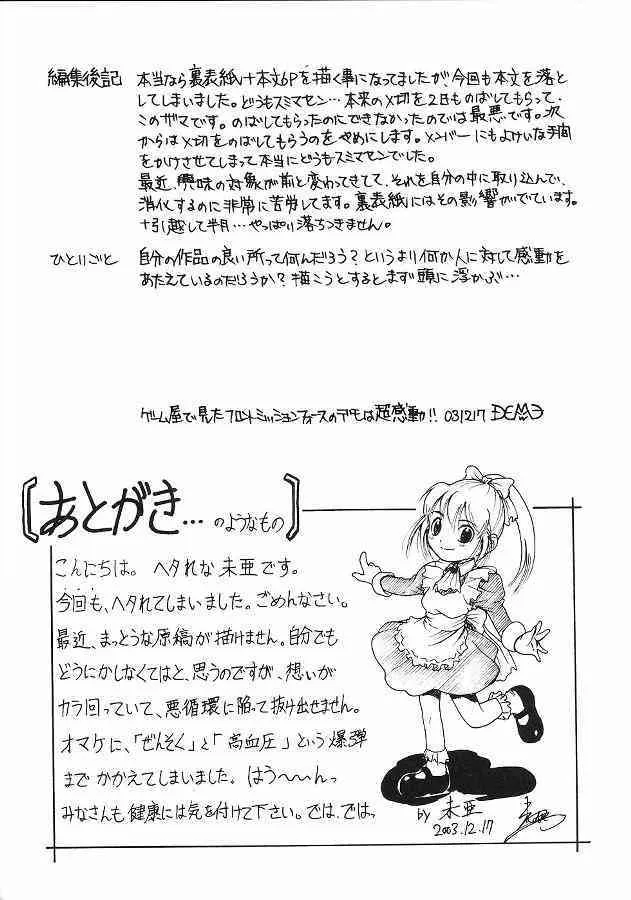 編集後記
本当なら裏表紙+本文6Pを描く事になってましたが、今回も本文を落と
してしまいました。どうもスミマセン…本来の〆切を2日ものばしてもらって、
このザマです。のばしてもらったのにできなかったのでは最悪です。次
からは〆切をのばしてもらうのをやめにします。メンバーにもよけいな手間
をかけさせてしまって本当にどうもスミマセンでした。
最近、興味の対象が前と変わってきてて、それを自分の中に取り込んで、
消化するのに非常に苦労してます。裏表紙にはその影響がでています。
+引越して半月…やっぱり落ちつきません。
ひとりごと
自分の作品の良い所って何んだろう?というより何か人に対して感動を
あたえているのだろうか?描こうとするとまず頭に浮かぶ…
ゲーム屋で見たフロントミッションフォースのデモは超感動!! 031217
あとがき…のようなもの
こんにちは。ヘタれな未亜です。
今回も、ヘタれてしまいました。ごめんなさい。
最近、まっとうな原稿が描けません。自分でも
どうにかしなくてはと、思うのですが、想いが
カラ回っていて、悪循環に陥って抜け出せません。
オマケに、「ぜんそく」と「高血圧」という爆弾
までかかえてしまいました。はう〜〜んっ
みなさんも健康には気を付けて下さい。では、では。
by 未亜
2003.12.17